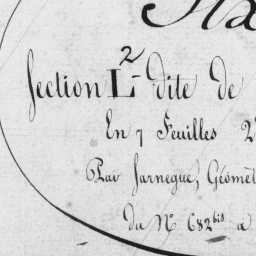 Six
Section L2 dite de
En 7 Feuilles 2
Par Jarnegue, Géomèt
Du N° 682 bis a